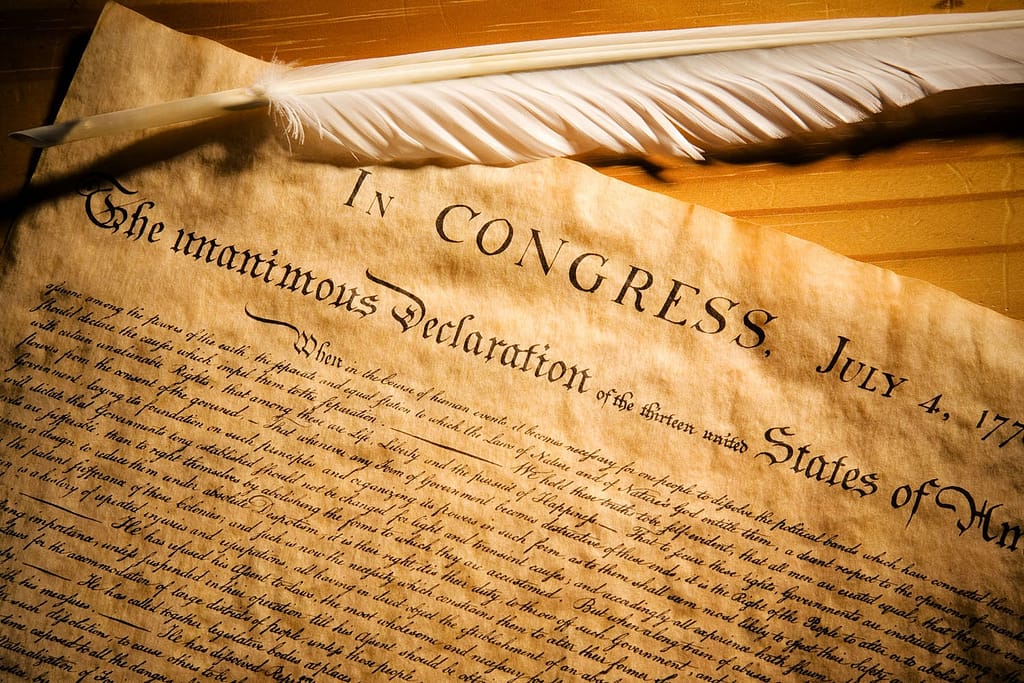 In CONGRESS, July 4, 177
The unanimous Declaration of the thirteen united States of Am
When in the Course of human events, it becomes necessary for one people to dissolve the political bands which have connected them
assume among the powers of the earth, the separate and equal station to which the Laws of Nature and of Nature's God entitle them, a decent respect to the opinions of
should declare the causes which impel them to the separation. We hold these truths to be self-evident, that all men are created equal, that they are
with certain unalienable Rights, that among these are Life, Liberty and the pursuit of Happiness.— That to secure these rights, Governments are instituted among
powers from the consent of the governed, — That whenever any Form of Government becomes destructive of these ends, it is the Right of the People to alter or to abolish
Government, laying its foundation on such principles and organizing its powers in such form, as to them shall seem most likely to effect their Safety
will dictate that Governments long established should not be changed for light and transient causes; and accordingly all experience hath shewn
are sufferable, than to right themselves by abolishing the forms to which they are accustomed. But when a long train of abuses
a design to reduce them under absolute Despotism, it is their right, it is their duty, to throw off such Government
the patient sufferance of these Colonies; and such is now the necessity which constrains them to alter their former
is a history of repeated injuries and usurpations, all having in direct object the establishment of an
He has refused his Assent to Laws, the most wholesome and necessary for
importance, unless suspended in their operation till his Assent should be
for the accommodation of large districts of people, unless those people
He has called together legislative bodies at places
his measures. He has dissolved
Dissolutions, to cause others to be
exposed to all the